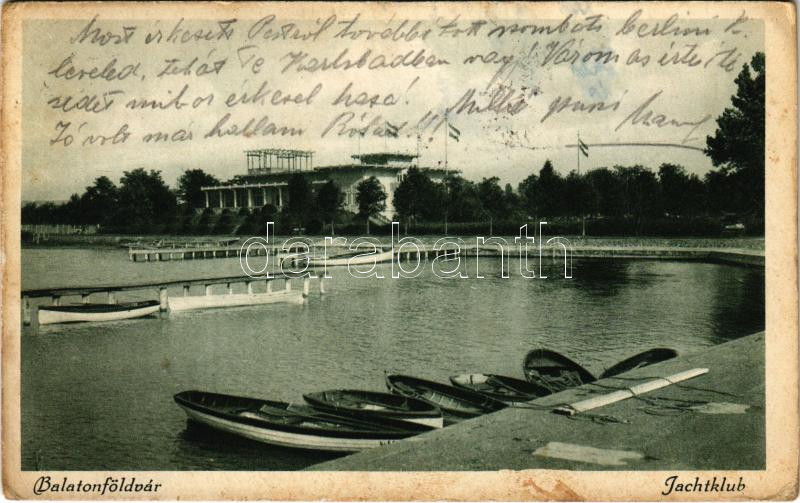 Most érkezett Pestről továbbított szombati berlini k.
leveled, tehát Te Karlsbadban vagy! Várom az érte-
sédet mikor érkezel haza! Millió puszi
Jó volt már hallani Rólad!!
darabanth
Balatonföldvár
Jachtklub